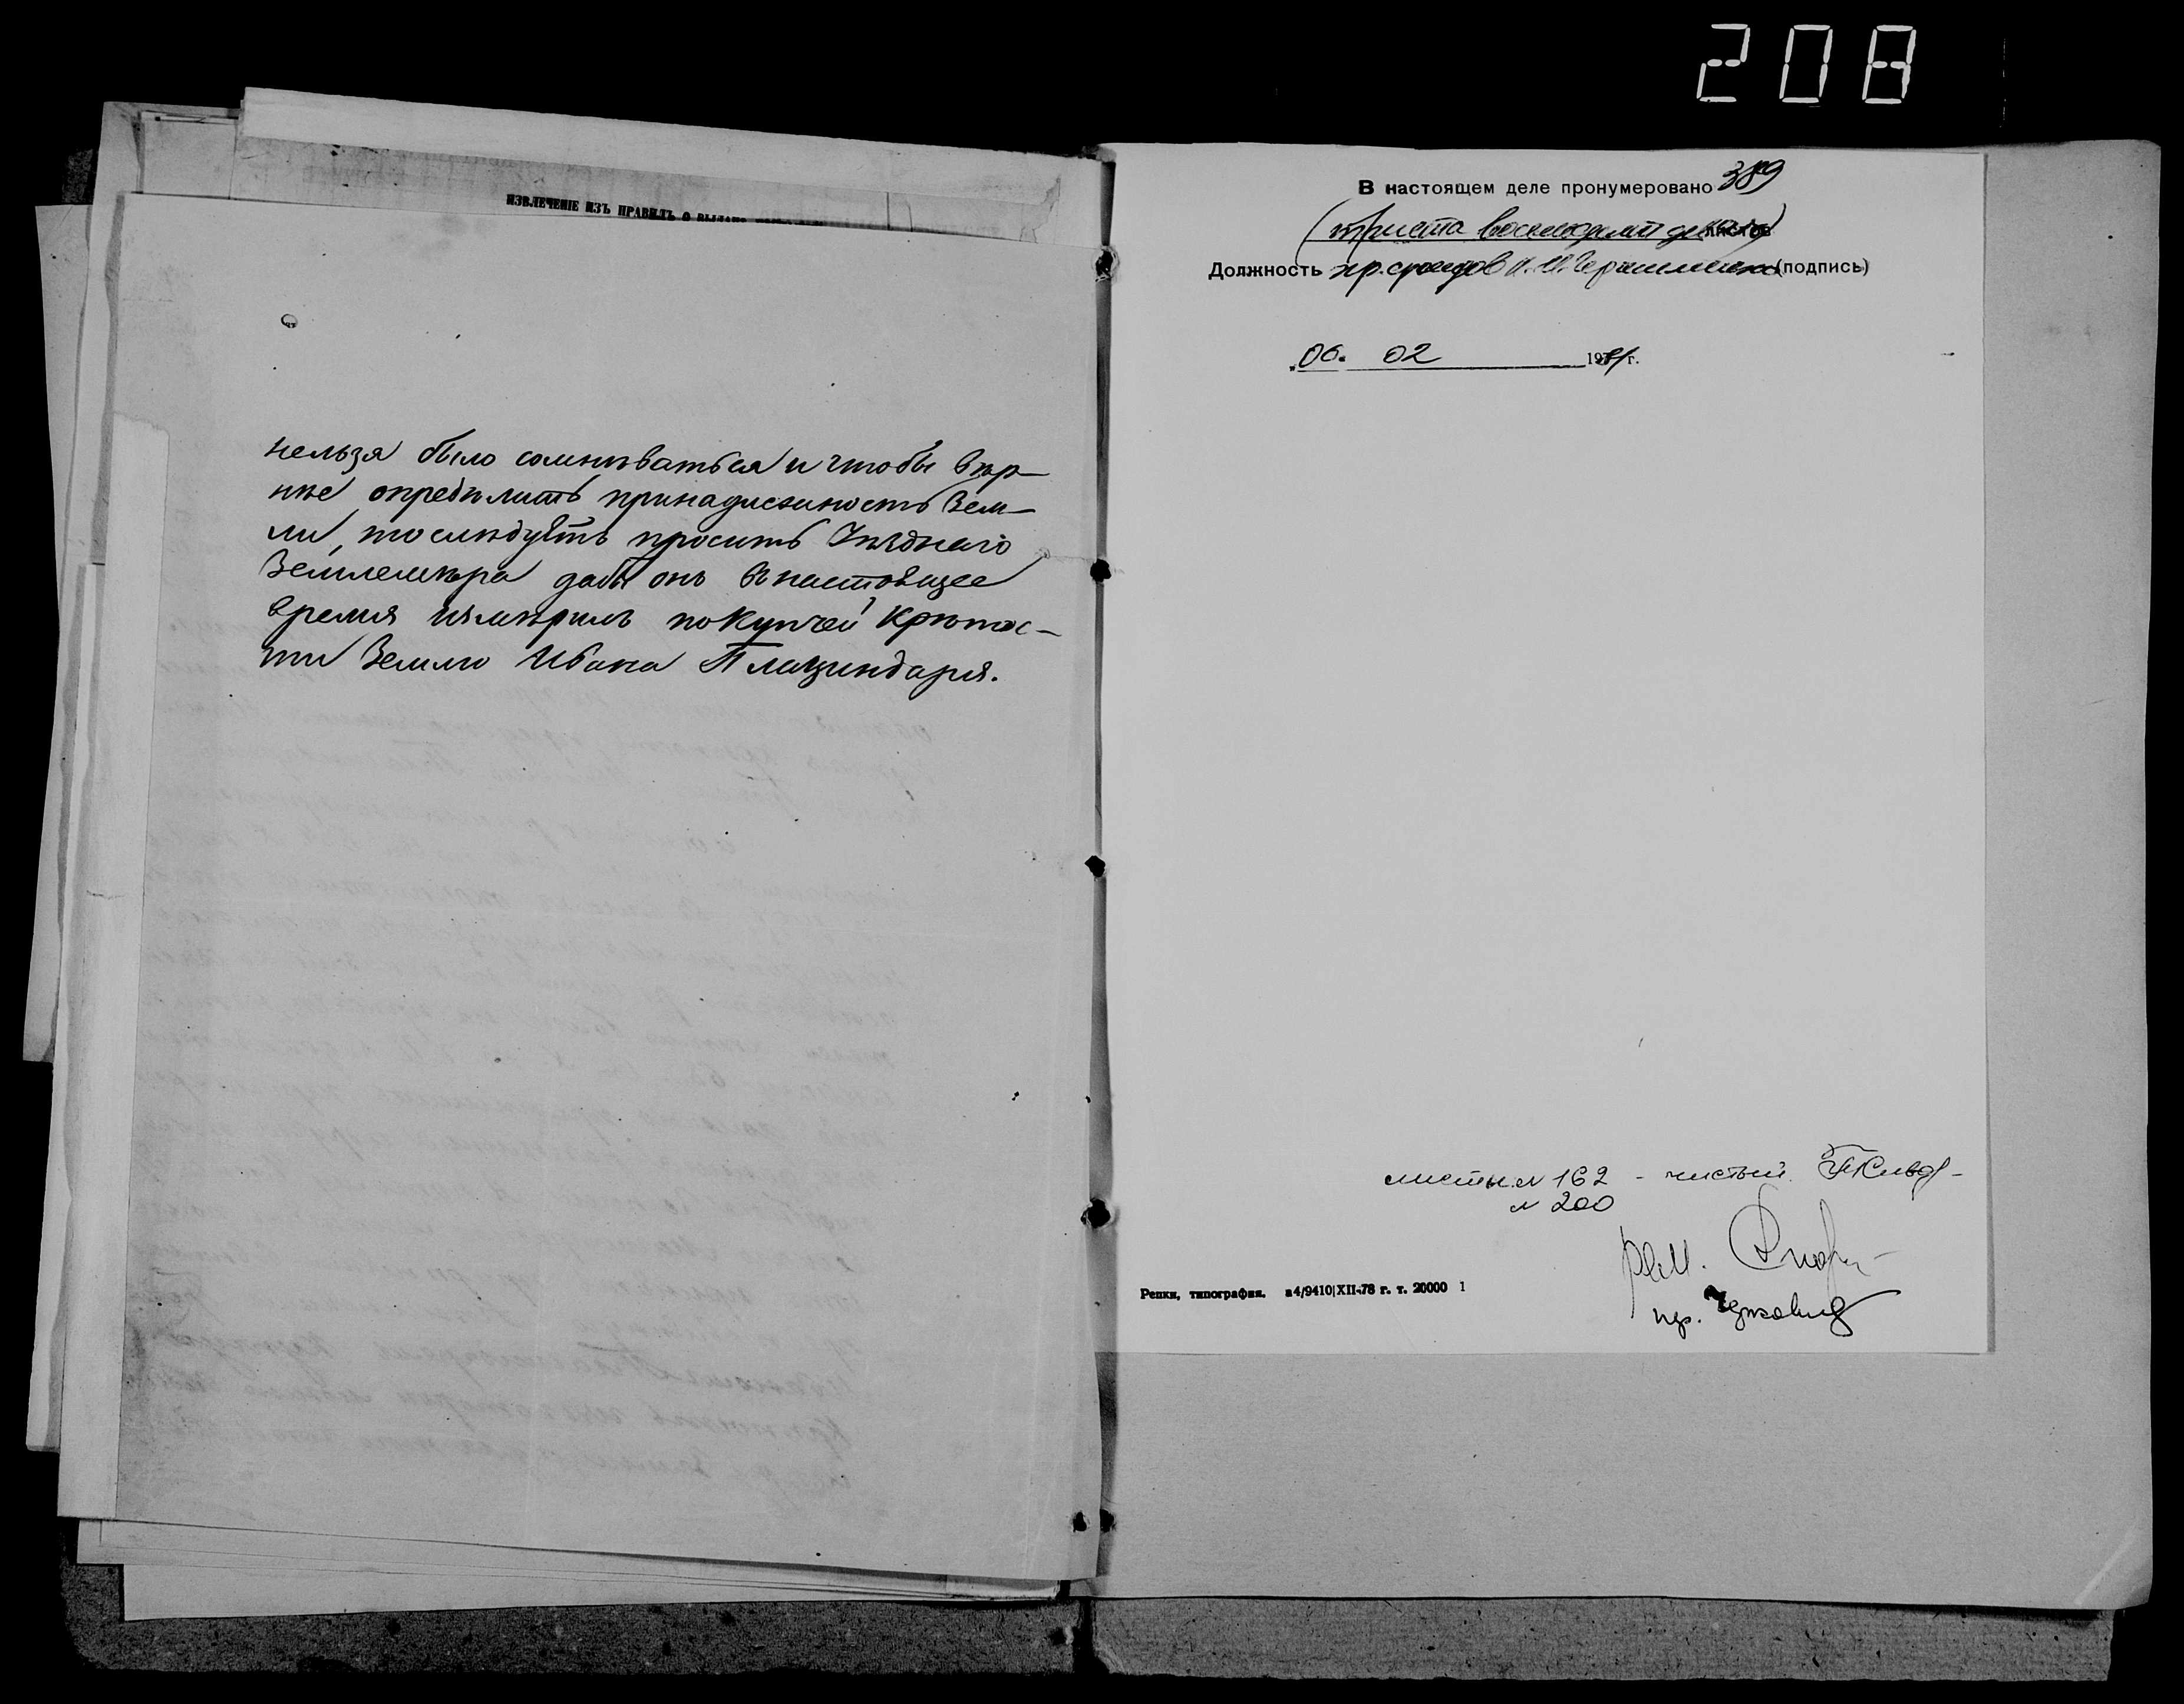 208
ИЗВЛЕЧЕНІЕ ИЗЪ ПРАВИЛЪ О
нельзя было сомнѣваться и чтобы вѣр-
нѣе опредѣлить принадлежность Зем-
ли, то слѣдуетъ просить Уѣзднаго
Землемѣра дабы онъ въ настоящее
время измѣрилъ по купчей крѣпос-
ти Землю Ивана Плациндаря.
В настоящем деле пронумеровано 389
(триста восемьдесят девять) листов
Должность хр. фондов (подпись)
06. 02 1981 г.
листы № 162 - чистый
№ 200
Репки, типография. з 4/9410|XII-78 г. т. 20000 1